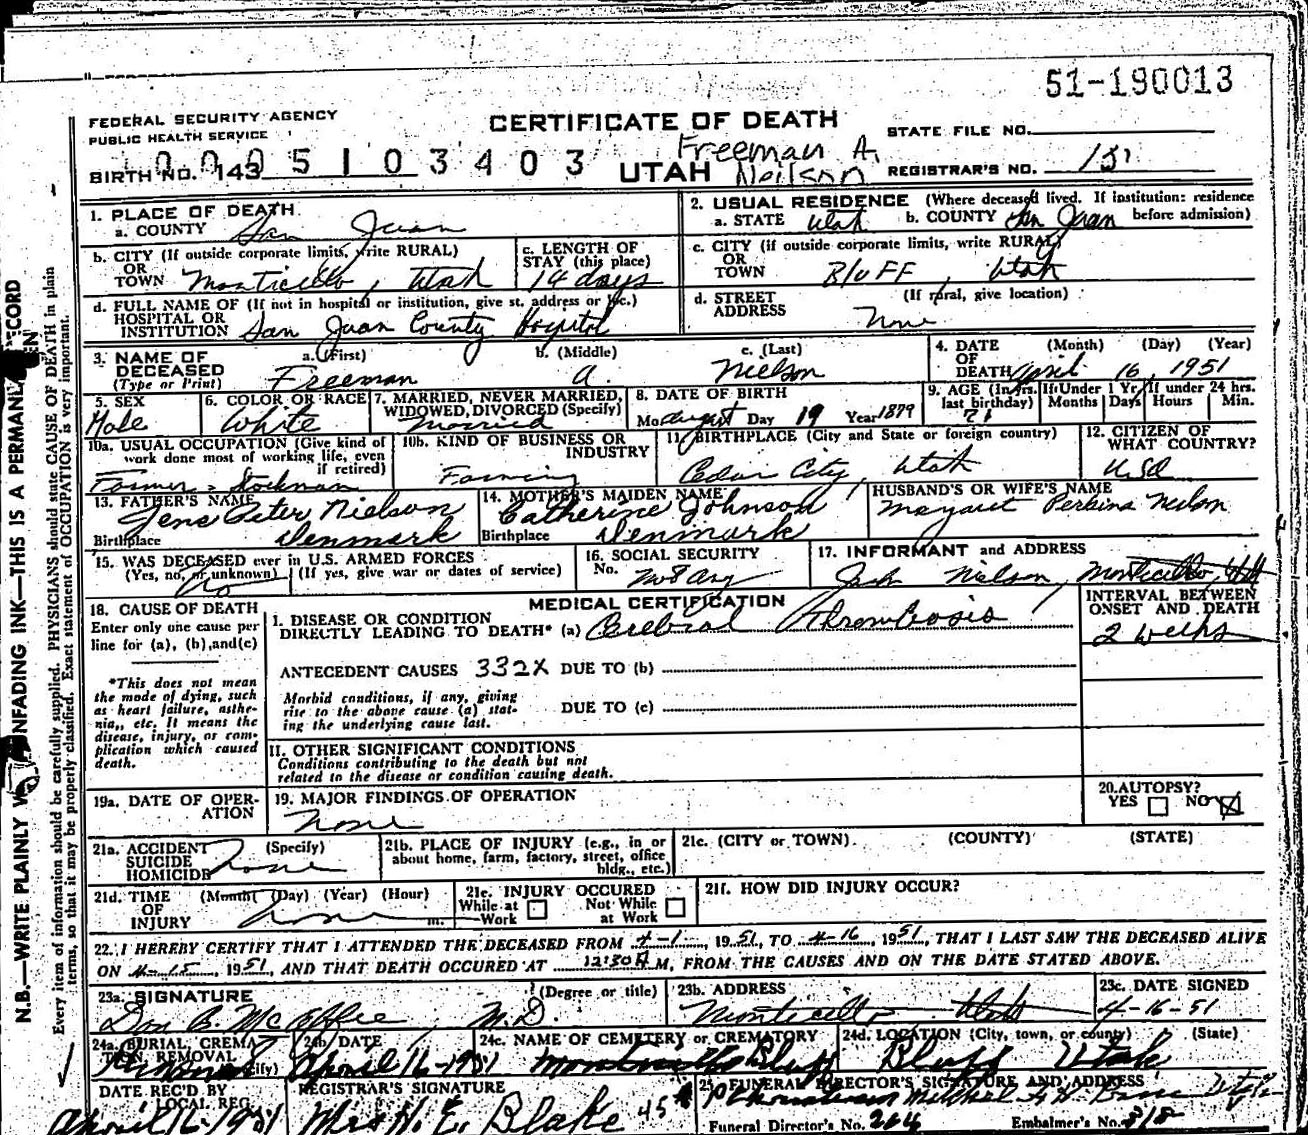 51-190013
FEDERAL SECURITY AGENCY
PUBLIC HEALTH SERVICE
CERTIFICATE OF DEATH
STATE FILE NO.
0005103403
Freeman A.
BIRTH NO. 143
UTAH Neilson
REGISTRAR'S NO. 151
1. PLACE OF DEATH
a. COUNTY San Juan
2. USUAL RESIDENCE (Where deceased lived. If institution: residence before admission)
a. STATE Utah b. COUNTY San Juan
b. CITY (If outside corporate limits, write RURAL) OR TOWN Monticello, Utah
c. LENGTH OF STAY (this place) 14 days
c. CITY (If outside corporate limits, write RURAL) OR TOWN Bluff, Utah
d. FULL NAME OF (If not in hospital or institution, give st. address or loc.) HOSPITAL OR INSTITUTION San Juan County Hospital
d. STREET ADDRESS (If rural, give location) None
3. NAME OF DECEASED (Type or Print)
a. (First) Freeman b. (Middle) A. c. (Last) Nielson
4. DATE OF DEATH (Month) (Day) (Year) April 16, 1951
5. SEX Male
6. COLOR OR RACE White
7. MARRIED, NEVER MARRIED, WIDOWED, DIVORCED (Specify) Married
8. DATE OF BIRTH Mo. August Day 19 Year 1879
9. AGE (In Yrs. last birthday) 71 If Under 1 Yr. Months Days If under 24 hrs. Hours Min.
10a. USUAL OCCUPATION (Give kind of work done most of working life, even if retired) Farmer - Stockman
10b. KIND OF BUSINESS OR INDUSTRY Farming
11. BIRTHPLACE (City and State or foreign country) Cedar City, Utah
12. CITIZEN OF WHAT COUNTRY? USA
13. FATHER'S NAME Jens Peter Nielson
Birthplace Denmark
14. MOTHER'S MAIDEN NAME Catherine Johnson
Birthplace Denmark
HUSBAND'S OR WIFE'S NAME Margaret Perkins Nielson
15. WAS DECEASED ever in U.S. ARMED FORCES (Yes, no, or unknown) (If yes, give war or dates of service) No
16. SOCIAL SECURITY No. Not Any
17. INFORMANT and ADDRESS
Jack Nielson, Monticello, Utah
18. CAUSE OF DEATH
Enter only one cause per line for (a), (b), and (c)
MEDICAL CERTIFICATION
INTERVAL BETWEEN ONSET AND DEATH
I. DISEASE OR CONDITION DIRECTLY LEADING TO DEATH* (a) Cerebral Thrombosis 2 weeks
ANTECEDENT CAUSES 332X DUE TO (b)
*This does not mean the mode of dying, such as heart failure, asthenia, etc. It means the disease, injury, or complication which caused death.
Morbid conditions, if any, giving rise to the above cause (a) stating the underlying cause last. DUE TO (c)
II. OTHER SIGNIFICANT CONDITIONS
Conditions contributing to the death but not related to the disease or condition causing death.
19a. DATE OF OPERATION
19. MAJOR FINDINGS OF OPERATION
None
20. AUTOPSY? YES NO
21a. ACCIDENT SUICIDE HOMICIDE (Specify) None
21b. PLACE OF INJURY (e.g., in or about home, farm, factory, street, office bldg., etc.)
21c. (CITY or TOWN) (COUNTY) (STATE)
21d. TIME OF INJURY (Month) (Day) (Year) (Hour) m. None
21e. INJURY OCCURED While at Work Not While at Work
21f. HOW DID INJURY OCCUR?
22. I HEREBY CERTIFY THAT I ATTENDED THE DECEASED FROM 4-1, 1951, TO 4-16, 1951, THAT I LAST SAW THE DECEASED ALIVE
ON 4-15, 1951, AND THAT DEATH OCCURED AT 12:30 A M, FROM THE CAUSES AND ON THE DATE STATED ABOVE.
23a. SIGNATURE (Degree or title) M.D.
23b. ADDRESS Monticello Utah
23c. DATE SIGNED 4-16-51
24a. BURIAL, CREMATION, REMOVAL (Specify)
24b. DATE April 16-1951
24c. NAME OF CEMETERY or CREMATORY Bluff
24d. LOCATION (City, town, or county) (State) Bluff Utah
DATE REC'D BY LOCAL REG. April 16-1951
REGISTRAR'S SIGNATURE Mrs H. E. Blake 45
25. FUNERAL DIRECTOR'S SIGNATURE AND ADDRESS
Mitchel
Funeral Director's No. 264 Embalmer's No. 318
N.B.—WRITE PLAINLY UNFADING INK—THIS IS A PERMANENT RECORD
Every item of information should be carefully supplied. PHYSICIANS should state CAUSE OF DEATH in plain
terms, so that it may be properly classified. Exact statement of OCCUPATION is very important.